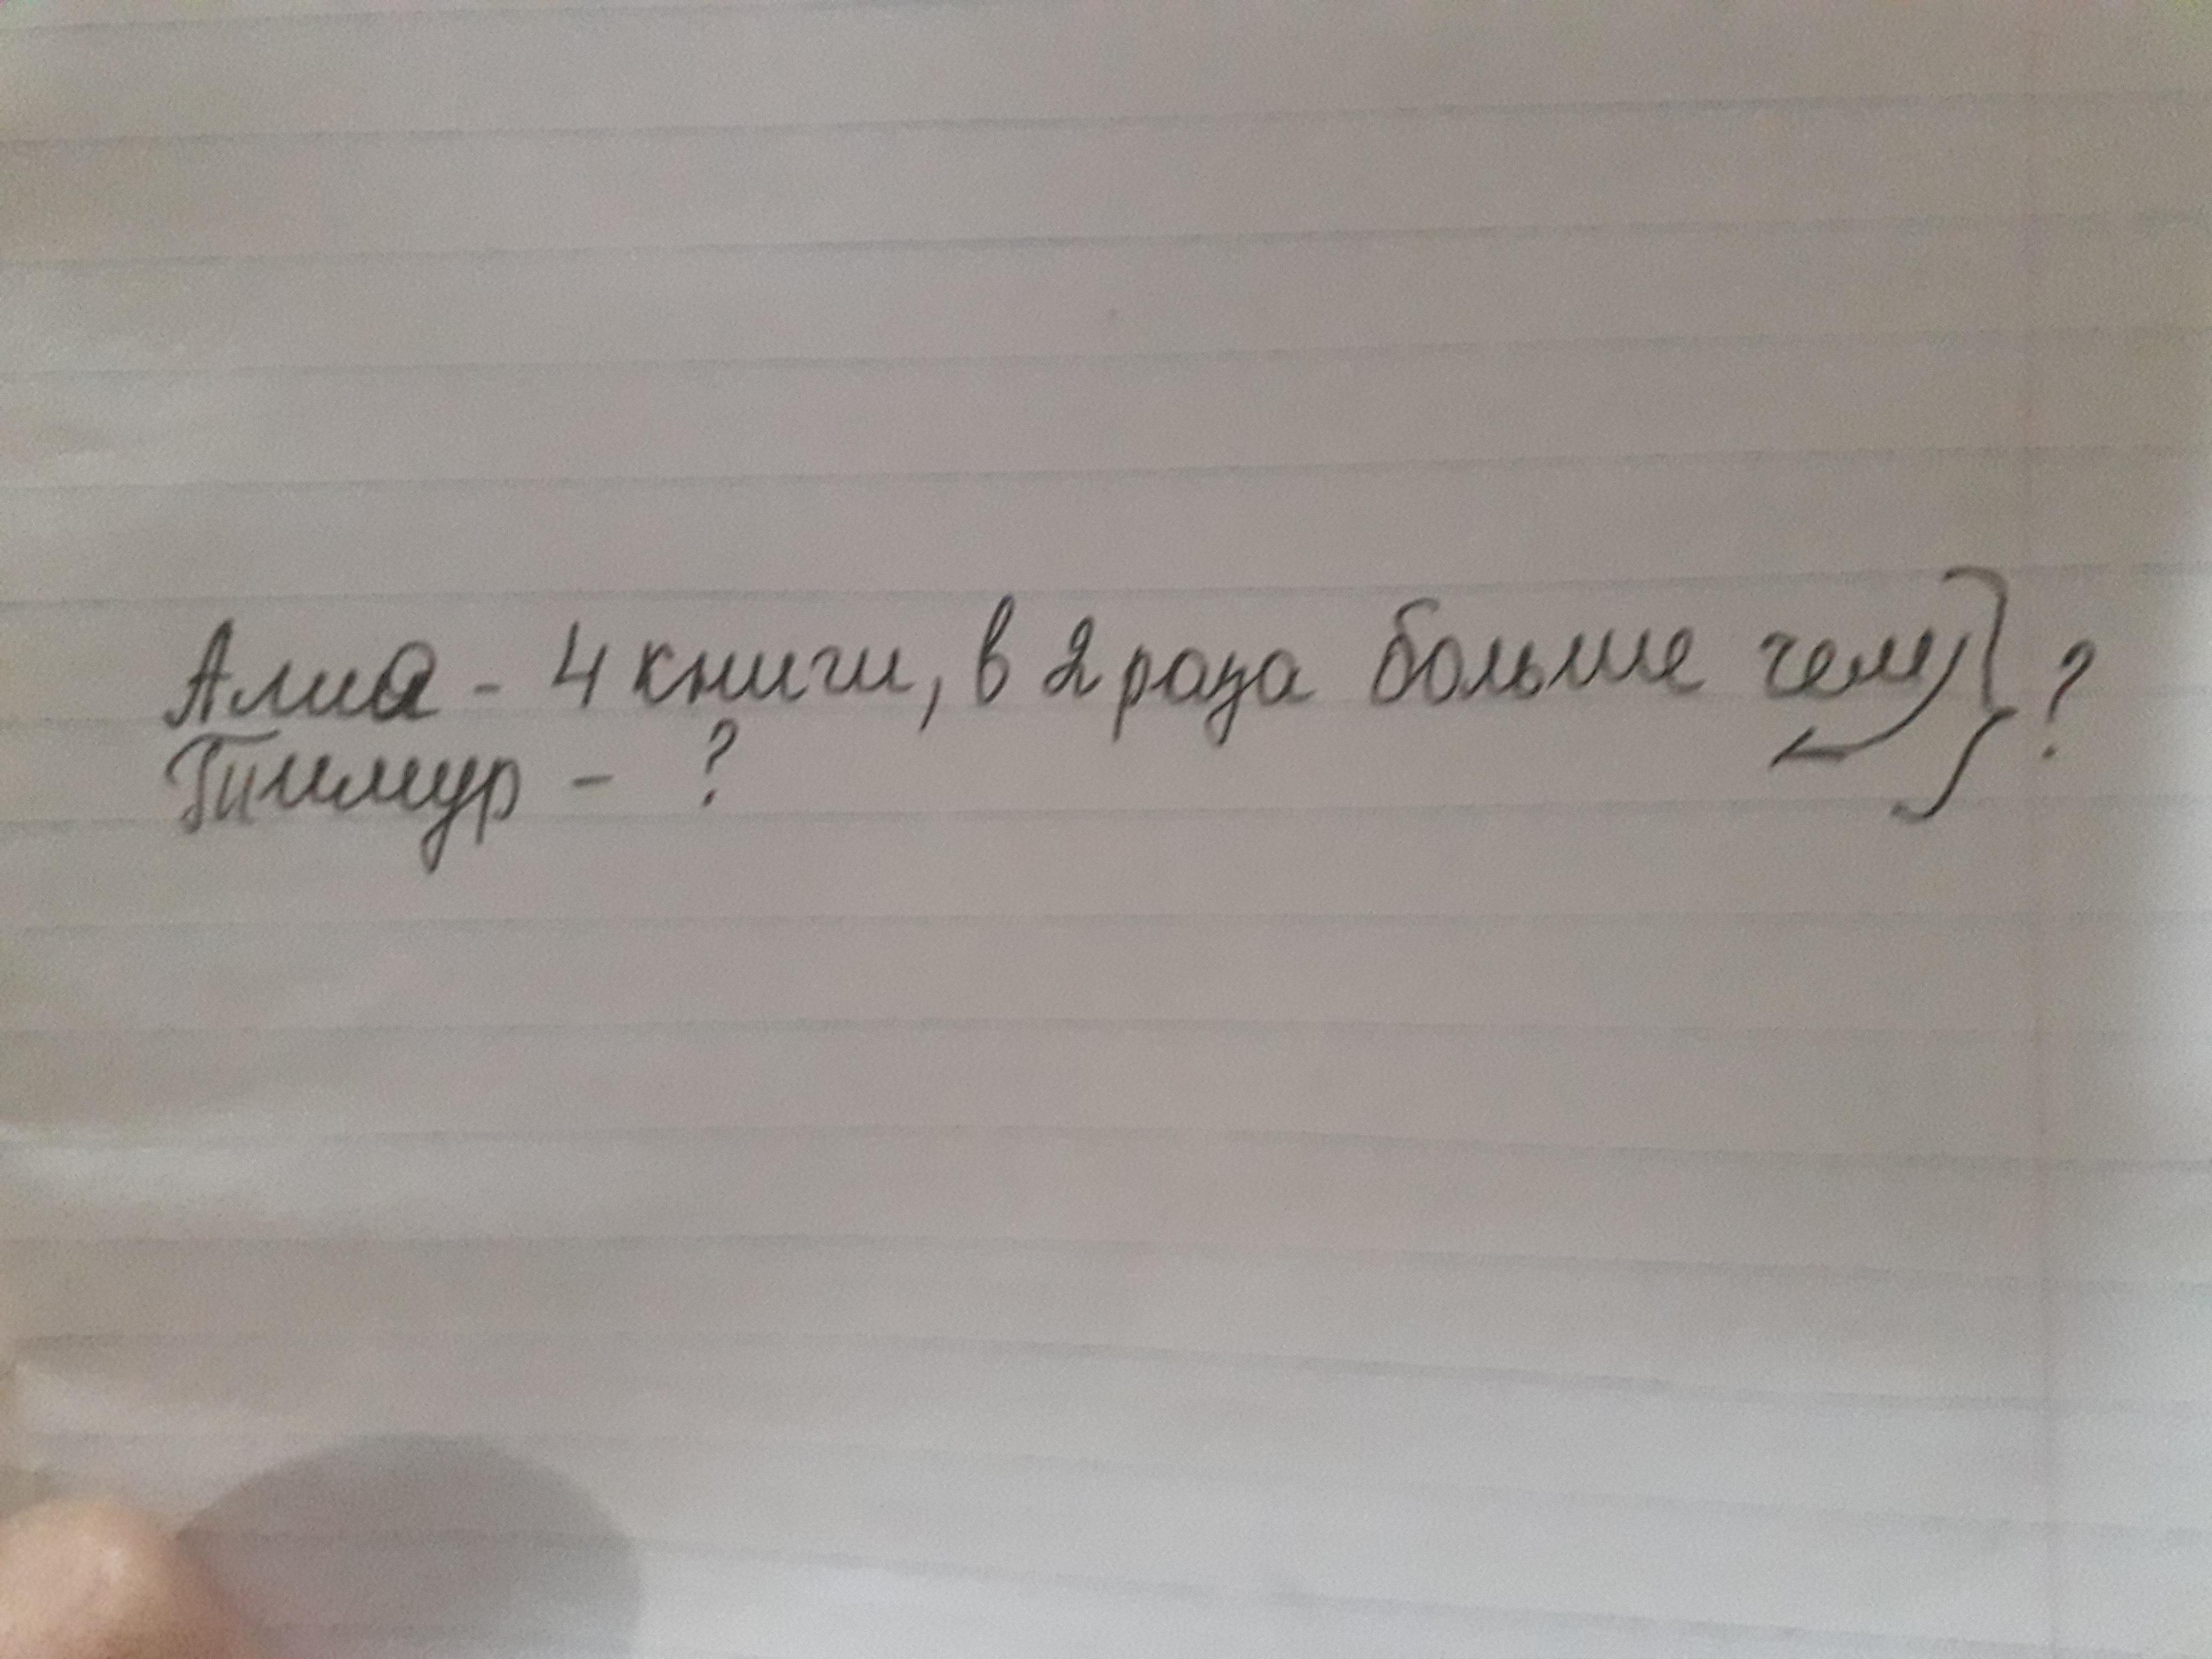 Алиа - 4 книги, в 2 раза больше чем } ?
Тимур - ?